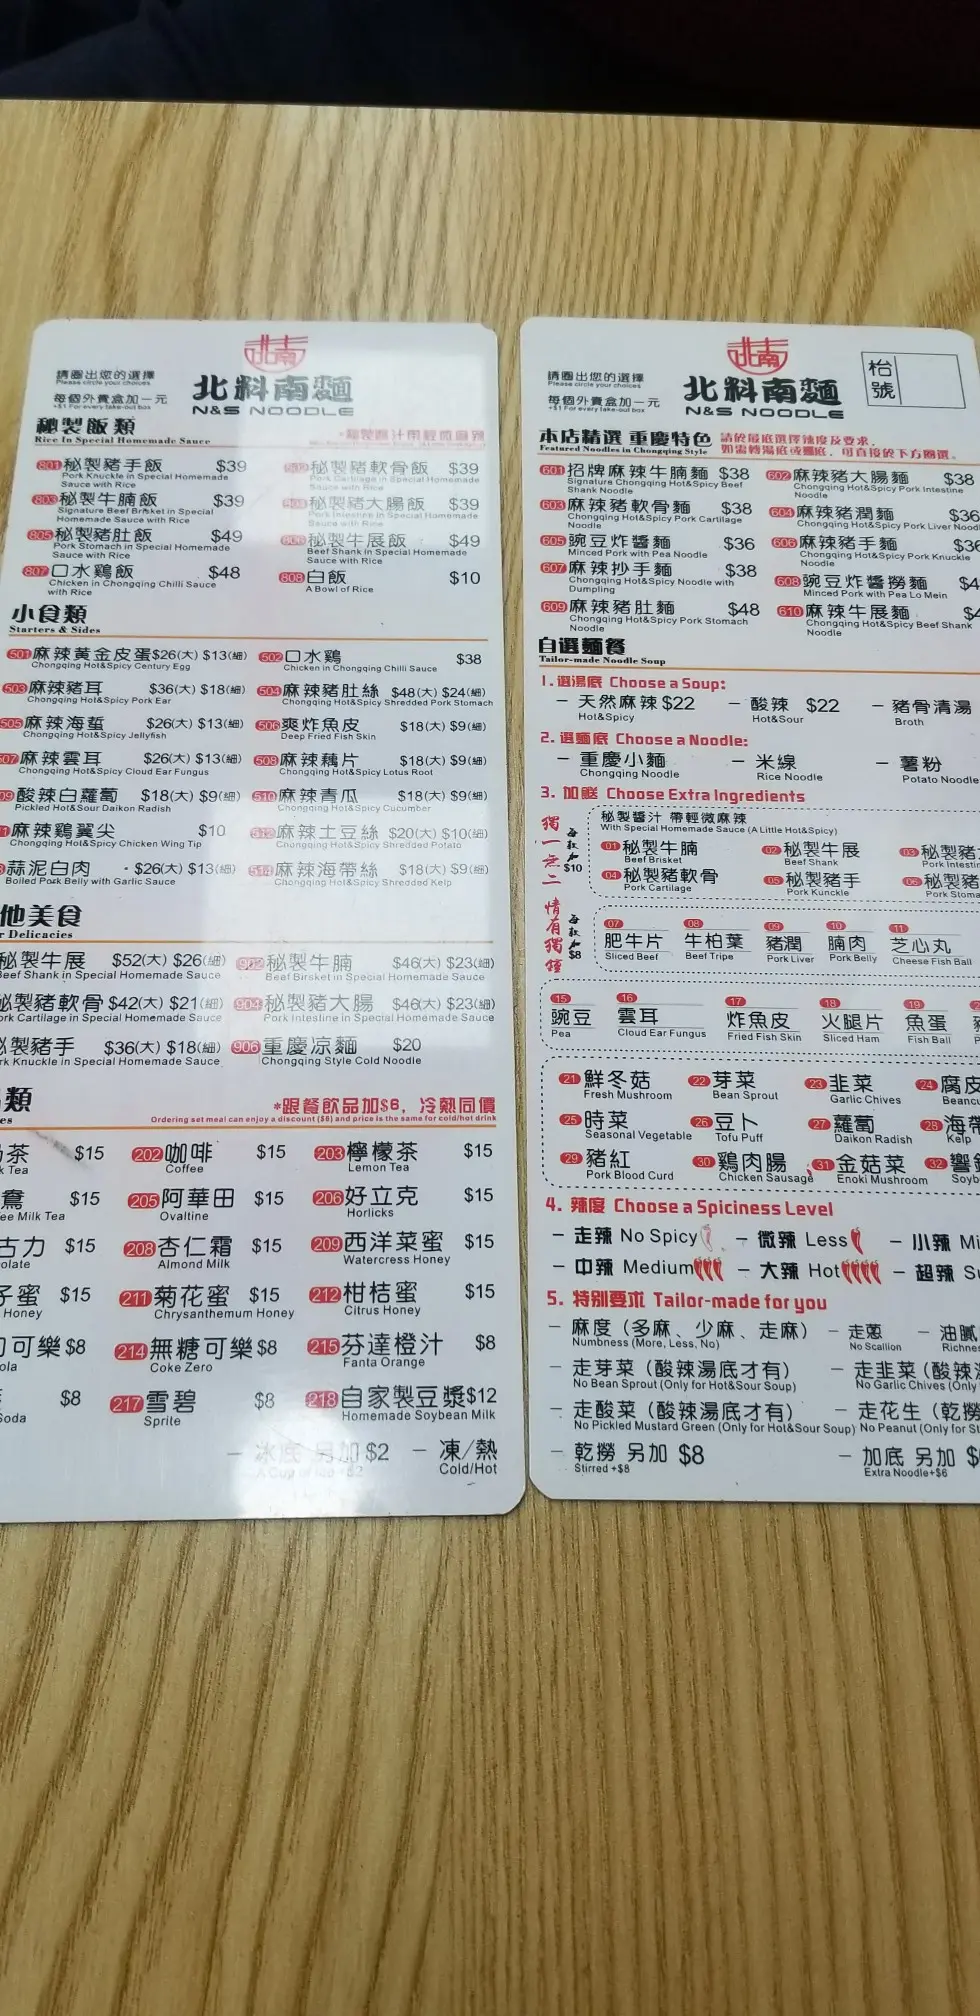 北南
請圈出您的選擇
Please circle your choices
每個外賣盒加一元
+$1 For every take-out box
北料南麵
N&S NOODLE
秘製飯類
Rice In Special Homemade Sauce
801 秘製豬手飯 $39
Pork Knuckle in Special Homemade
Sauce with Rice
秘製豬軟骨飯 $39
Pork Cartilage in Special Homemade
Sauce with Rice
803 秘製牛腩飯 $39
Signature Beef Brisket in Special
Homemade Sauce with Rice
秘製豬大腸飯 $39
Pork Intestine in Special Homemade
Sauce with Rice
805 秘製豬肚飯 $49
Pork Stomach in Special Homemade
Sauce with Rice
806 秘製牛展飯 $49
Beef Shank in Special Homemade
Sauce with Rice
807 口水鷄飯 $48
Chicken in Chongqing Chilli Sauce
with Rice
808 白飯 $10
A Bowl of Rice
小食類
Starters & Sides
501 麻辣黄金皮蛋 $26(大) $13(細)
Chongqing Hot&Spicy Century Egg
502 口水鷄 $38
Chicken in Chongqing Chilli Sauce
503 麻辣豬耳 $36(大) $18(細)
Chongqing Hot&Spicy Pork Ear
504 麻辣豬肚絲 $48(大) $24(細)
Chongqing Hot&Spicy Shredded Pork Stomach
505 麻辣海蜇 $26(大) $13(細)
Chongqing Hot&Spicy Jellyfish
506 爽炸魚皮 $18(大) $9(細)
Deep Fried Fish Skin
07 麻辣雲耳 $26(大) $13(細)
Chongqing Hot&Spicy Cloud Ear Fungus
508 麻辣藕片 $18(大) $9(細)
Chongqing Hot&Spicy Lotus Root
09 酸辣白蘿蔔 $18(大) $9(細)
Pickled Hot&Sour Daikon Radish
510 麻辣青瓜 $18(大) $9(細)
Chongqing Hot&Spicy Cucumber
1 麻辣鷄翼尖 $10
Chongqing Hot&Spicy Chicken Wing Tip
512 麻辣土豆絲 $20(大) $10(細)
Chongqing Hot&Spicy Shredded Potato
蒜泥白肉 $26(大) $13(細)
Boiled Pork Belly with Garlic Sauce
514 麻辣海帶絲 $18(大) $9(細)
Chongqing Hot&Spicy Shredded Kelp
他美食
r Delicacies
秘製牛展 $52(大) $26(細)
Beef Shank in Special Homemade Sauce
902 秘製牛腩 $46(大) $23(細)
Beef Birsket in Special Homemade Sauce
秘製豬軟骨 $42(大) $21(細)
ork Cartilage in Special Homemade Sauce
904 秘製豬大腸 $46(大) $23(細)
Pork Intestine in Special Homemade Sauce
製豬手 $36(大) $18(細)
rk Knuckle in Special Homemade Sauce
906 重慶凉麵 $20
Chongqing Style Cold Noodle
類
es
*跟餐飲品加$6，冷熱同價
Ordering set meal can enjoy a discount ($6) and price is the same for cold/hot drink
茶 $15
k Tea
202 咖啡 $15
Coffee
203 檸檬茶 $15
Lemon Tea
鴦 $15
ee Milk Tea
205 阿華田 $15
Ovaltine
206 好立克 $15
Horlicks
古力 $15
olate
208 杏仁霜 $15
Almond Milk
209 西洋菜蜜 $15
Watercress Honey
子蜜 $15
Honey
211 菊花蜜 $15
Chrysanthemum Honey
212 柑桔蜜 $15
Citrus Honey
可樂 $8
ola
214 無糖可樂 $8
Coke Zero
215 芬達橙汁 $8
Fanta Orange
$8
Soda
217 雪碧 $8
Sprite
218 自家製豆漿 $12
Homemade Soybean Milk
– 冰底 另加 $2
– 凍/熱
Cold/Hot
北南
請圈出您的選擇
Please circle your choices
每個外賣盒加一元
+$1 For every take-out box
北料南麵
N&S NOODLE
枱號
本店精選 重慶特色
Featured Noodles in Chongqing Style
請於最底選擇辣度及要求，
如需轉湯底或麵底，可直接於下方圈選。
601 招牌麻辣牛腩麵 $38
Signature Chongqing Hot&Spicy Beef
Shank Noodle
602 麻辣豬大腸麵 $38
Chongqing Hot&Spicy Pork Intestine
Noodle
603 麻辣豬軟骨麵 $38
Chongqing Hot&Spicy Pork Cartilage
Noodle
604 麻辣豬潤麵 $36
Chongqing Hot&Spicy Pork Liver Nood
605 豌豆炸醬麵 $36
Minced Pork with Pea Noodle
606 麻辣豬手麵 $36
Chongqing Hot&Spicy Pork Knuckle
Noodle
607 麻辣抄手麵 $38
Chongqing Hot&Spicy Noodle with
Dumpling
608 豌豆炸醬撈麵 $4
Minced Pork with Pea Lo Mein
609 麻辣豬肚麵 $48
Chongqing Hot&Spicy Pork Stomach
Noodle
610 麻辣牛展麵 $4
Chongqing Hot&Spicy Beef Shank
Noodle
自選麵餐
Tailor-made Noodle Soup
1. 選湯底 Choose a Soup:
– 天然麻辣 $22 – 酸辣 $22 – 豬骨清湯
Hot&Spicy Hot&Sour Broth
2. 選麵底 Choose a Noodle:
– 重慶小麵 – 米線 – 薯粉
Chongqing Noodle Rice Noodle Potato Noodle
3. 加餸 Choose Extra Ingredients
獨一無二
每款加$10
秘製醬汁 帶輕微麻辣
With Special Homemade Sauce (A Little Hot&Spicy)
01 秘製牛腩 02 秘製牛展 03 秘製豬
Beef Brisket Beef Shank Pork Intestin
04 秘製豬軟骨 05 秘製豬手 06 秘製豬
Pork Cartilage Pork Kunckle Pork Stoma
情有獨鍾
每款加$8
07 08 09 10 11
肥牛片 牛柏葉 豬潤 腩肉 芝心丸
Sliced Beef Beef Tripe Pork Liver Pork Belly Cheese Fish Ball
15 16 17 18 19
豌豆 雲耳 炸魚皮 火腿片 魚蛋
Pea Cloud Ear Fungus Fried Fish Skin Sliced Ham Fish Ball
21 鮮冬菇 22 芽菜 23 韭菜 24 腐皮
Fresh Mushroom Bean Sprout Garlic Chives Beancu
25 時菜 26 豆卜 27 蘿蔔 28 海帶
Seasonal Vegetable Tofu Puff Daikon Radish Kelp
29 豬紅 30 鷄肉腸 31 金菇菜 32 響鈴
Pork Blood Curd Chicken Sausage Enoki Mushroom Soyb
4. 辣度 Choose a Spiciness Level
– 走辣 No Spicy – 微辣 Less – 小辣 Mi
– 中辣 Medium – 大辣 Hot – 超辣 Su
5. 特别要求 Tailor-made for you
– 麻度（多麻、少麻、走麻） – 走蔥 – 油膩
Numbness (More, Less, No) No Scallion Richne
– 走芽菜（酸辣湯底才有） – 走韭菜（酸辣
No Bean Sprout (Only for Hot&Sour Soup) No Garlic Chives (Only
– 走酸菜（酸辣湯底才有） – 走花生（乾撈
No Pickled Mustard Green (Only for Hot&Sour Soup) No Peanut (Only for St
– 乾撈 另加 $8 – 加底 另加 $
Stirred +$8 Extra Noodle+$6